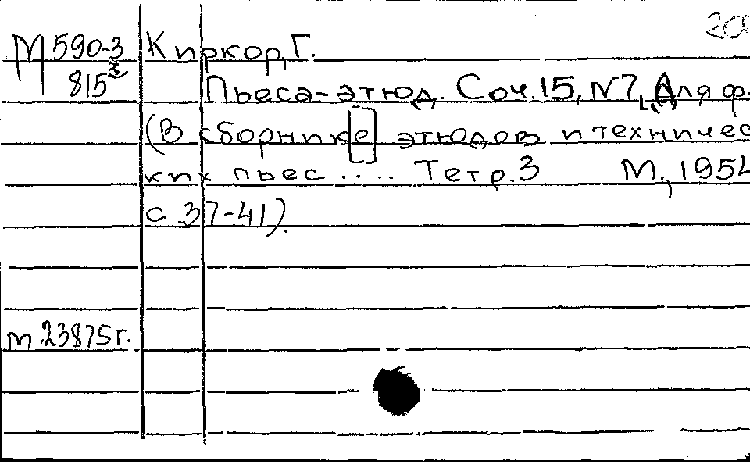 М 590-3 Киркор, Г.
815 Пьеса-этюд. Соч. 15, N7, Для ф.
(В сборнике этюдов и техничес
ких пьес .... Тетр. 3 М., 195
с. 37-41).
м 23875г.